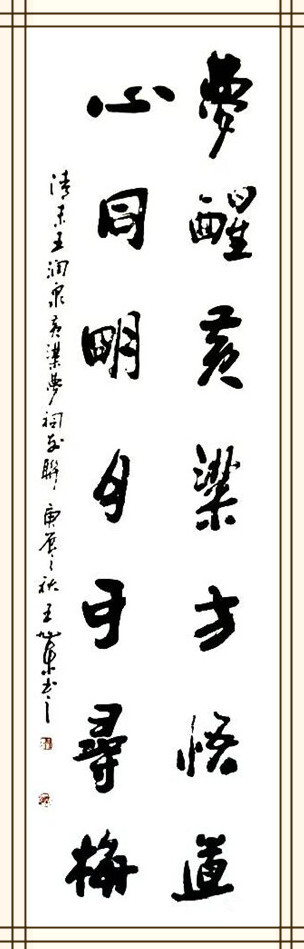 夢醒黄粱方悟道
心同明月可尋梅
清末王润泉黄粱夢祠聯 庚辰之秋王书之